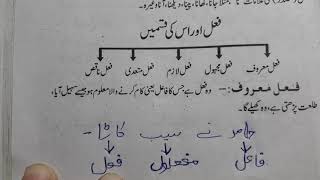 (مصدر) کی علامات "نا" ہے مثلاً جانا، کھانا، پینا، دیکھنا، آنا وغیرہ۔
فعل اور اس کی قسمیں
فعل معروف فعل مجہول فعل لازم فعل متعدی فعل ناقص
فعل معروف:- وہ فعل ہے جس کا فاعل یعنی کام کرنے والا معلوم ہو جیسے سہیل آیا،
طلعت پڑھتی ہے، وہ کھیلے گا۔
حامد نے سیب کاٹا -
فاعل مفعول فعل